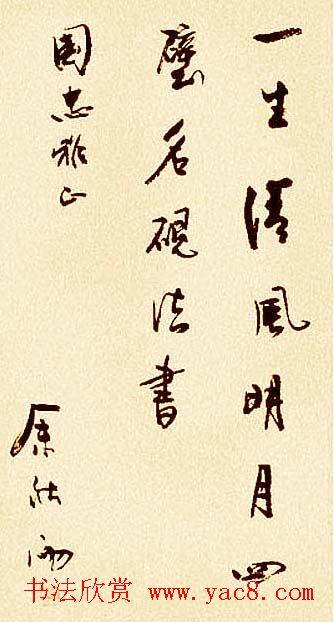 一生清風明月四
壁名硯法書
國忠雅正
余秋雨
书法欣赏 www.yac8.com